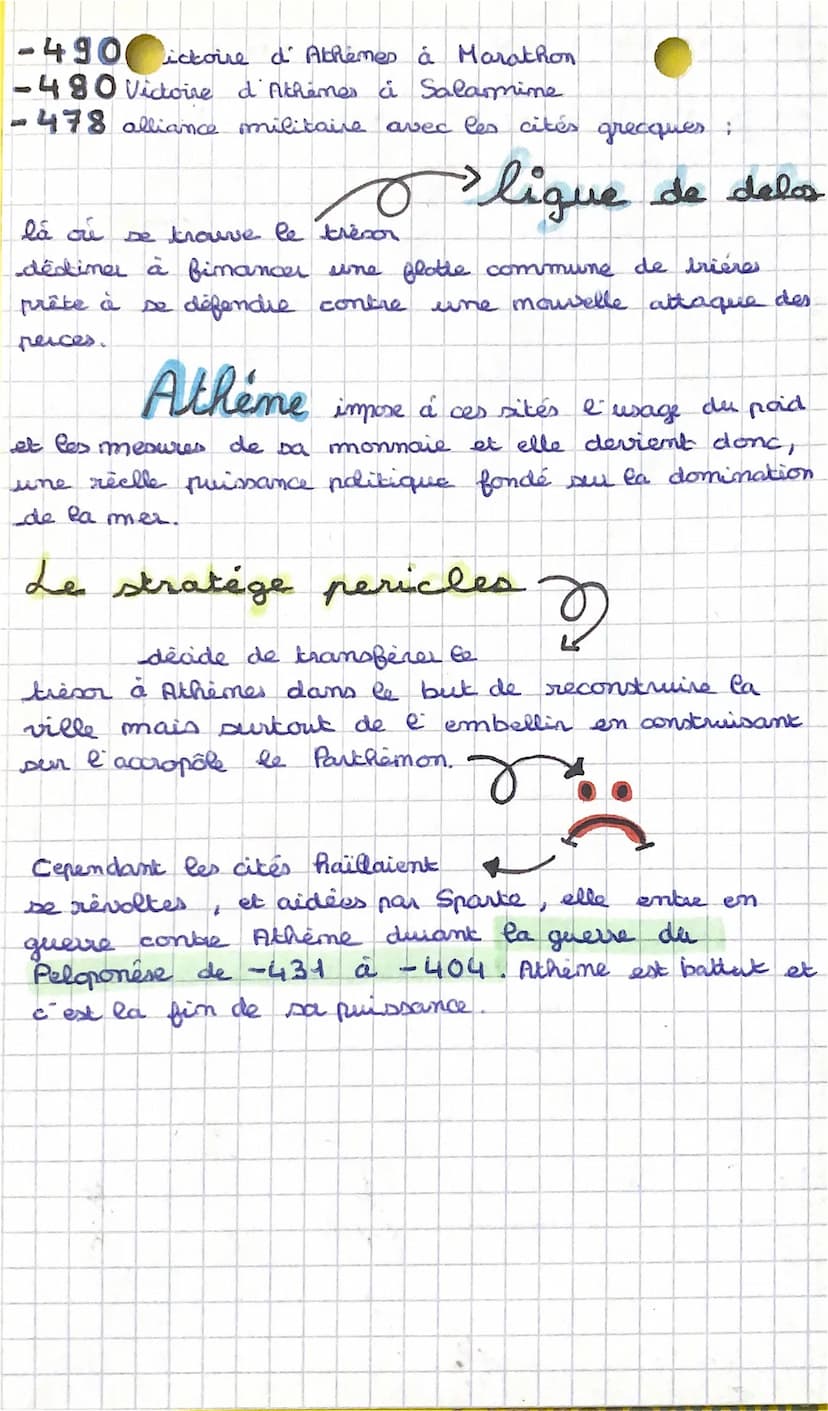 -490 ictoire d'Athènes à Marathon
-480 Victoire d'Athènes à Salamine
-478 alliance militaire avec les cités grecques :
ligue de delos
là où se trouve le trésor
déstiner à financer une flotte commune de trières
prête à se défendre contre une nouvelle attaque des
perces.
Athéne impose à ces sités l'usage du poid
et les mesures de sa monnaie et elle devient donc,
une réelle puissance politique fondé sur la domination
de la mer.
Le stratége pericles
décide de transférer le
trésor à Athènes dans le but de reconstruire la
ville mais surtout de l'embellir en construisant
sur l'accropôle le Parthénon.
Cependant les cités haïllaient
se révoltes, et aidées par Sparte, elle entre en
guerre contre Athéne durant la guerre du
Peloponése de -431 à -404. Athéne est battut et
c'est la fin de sa puissance.